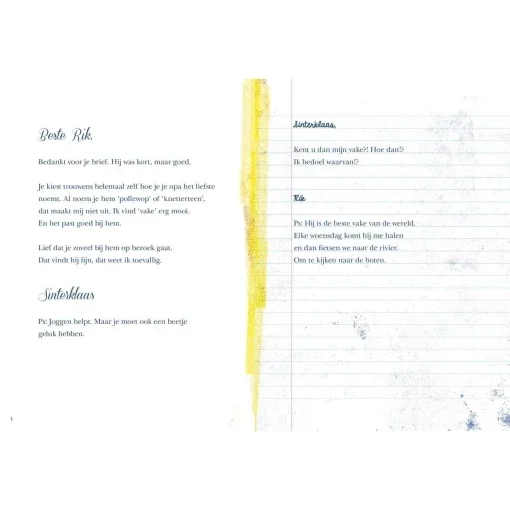 Beste Rik,
Bedankt voor je brief. Hij was kort, maar goed.
Je kiest trouwens helemaal zelf hoe je je opa het liefste
noemt. Al noem je hem ‘pollewop’ of ‘knetterteen’,
dat maakt mij niet uit. Ik vind ‘vake’ erg mooi.
En het past goed bij hem.
Lief dat je zoveel bij hem op bezoek gaat.
Dat vindt hij fijn, dat weet ik toevallig.
Sinterklaas
Ps: Joggen helpt. Maar je moet ook een beetje
geluk hebben.
Sinterklaas,
Kent u dan mijn vake?! Hoe dan!?
Ik bedoel waarvan!?
Rik
Ps: Hij is de beste vake van de wereld.
Elke woensdag komt hij me halen
en dan fietsen we naar de rivier.
Om te kijken naar de boten.